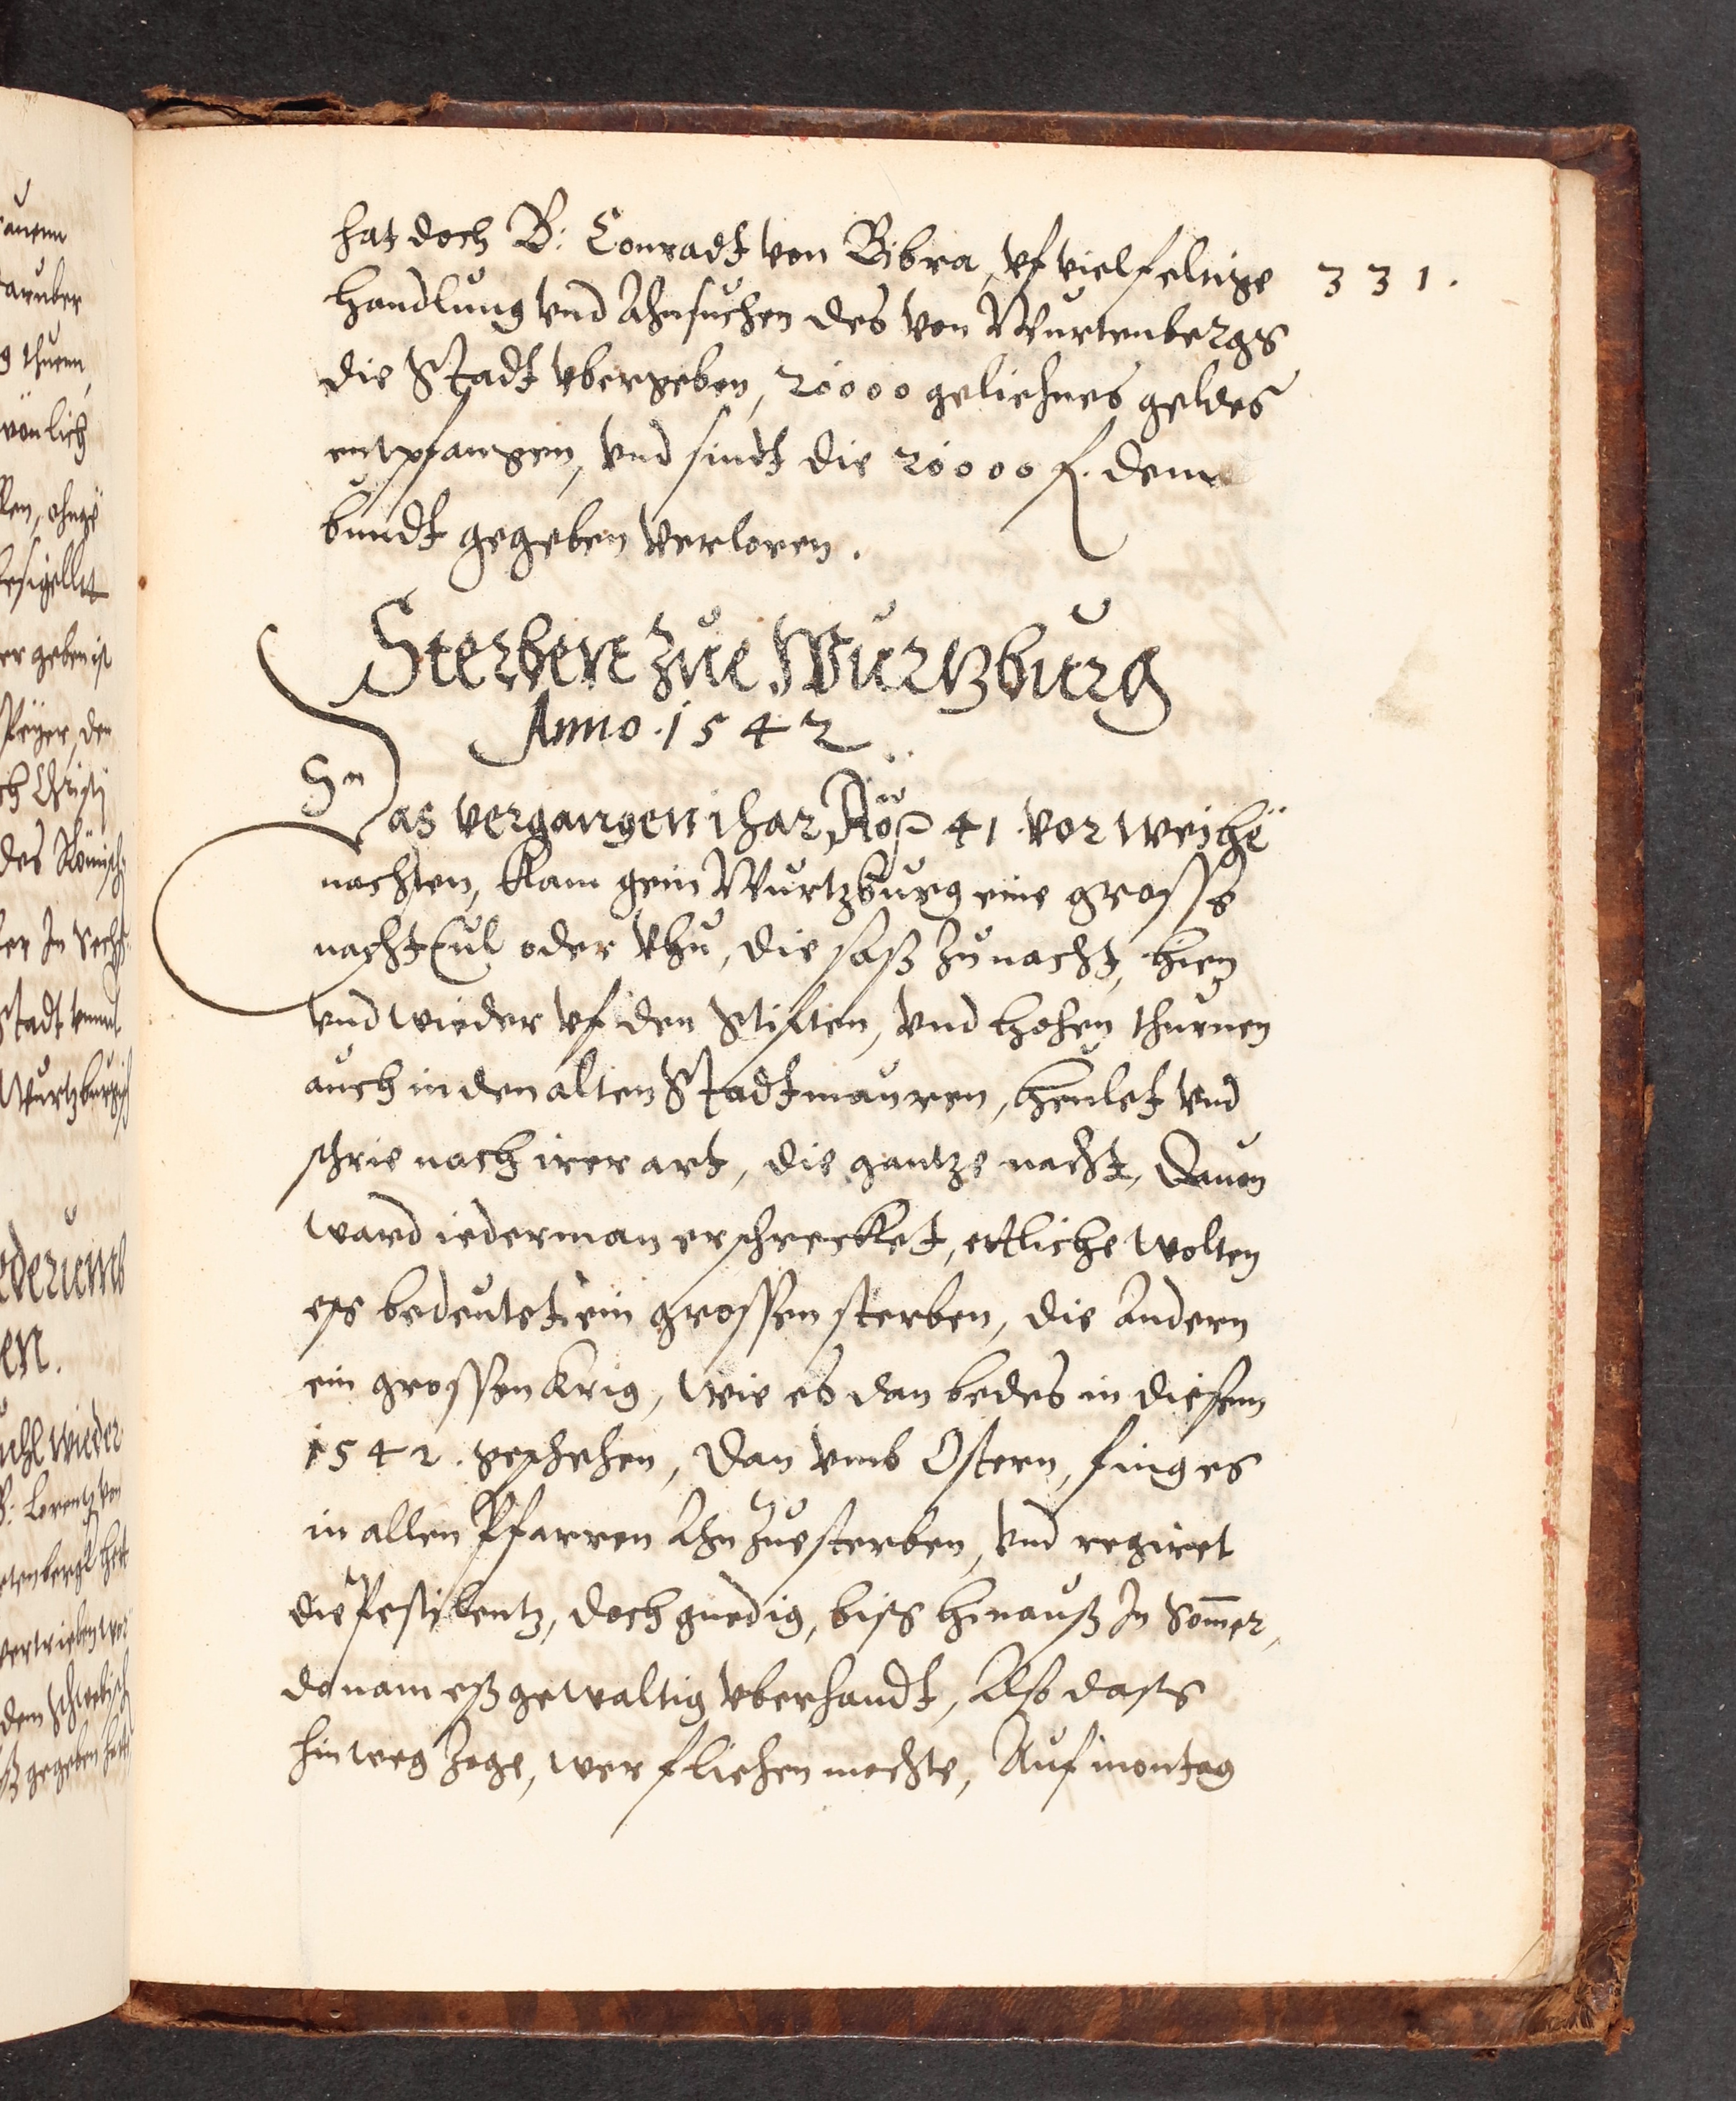 hat doch B: Conradt von Bibra, vf vielfeltige
331.
handlung vnd Ahnsuchen des von Wurtenbergs
die Stadt vbergeben, 20000 geliehnes geldes
entpfangen, vnd sindt die 20000 f. dem
bundt gegeben verloren.
Sterben zue Wurtzburg
Anno. 1542
In
Das vergangen ihar 41. vor weihe
nachten, kam gein Wurtzburg eine grosse
nachtEul oder vhu, die saß zu nacht, hien
vnd wieder vf den Stiften, vnd hohen thurnen
auch in den alten Stadtmauren, heulet vnd
schrie nach irer art, die gantze nacht, Dauon
ward iederman erschrecket, ettliche wolten
ess bedeutet ein grossen sterben, die Andern
ein grossen krig, wie es dan bedes in diesem
1542. geschehen, Dan vmb Ostern, fing es
in allen Pfarren Ahn zue sterben, vnd regiret
die Pestilentz, doch gnedig, biss hinauß In Som̄er,
do nam eß gewaltig vberhandt, Also dass
hinweg zoge, wer fliehen mochte, Auf montag